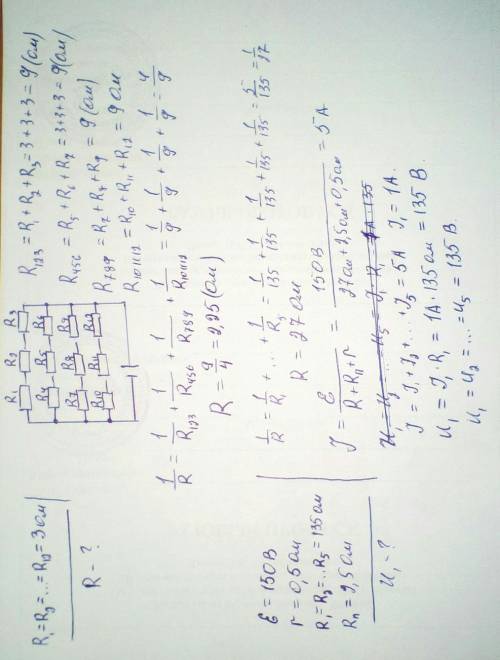 R₁=R₂=...=R₁₂=3 ом
R - ?
R₁ R₂ R₃
R₄ R₅ R₆
R₇ R₈ R₉
R₁₀ R₁₁ R₁₂
R₁₂₃ = R₁ + R₂ + R₃ = 3+3+3 = 9 (ом)
R₄₅₆ = R₅ + R₆ + R₇ = 3+3+3 = 9 (ом)
R₇₈₉ = R₇ + R₈ + R₉ = 9 (ом)
R₁₀₁₁₁₂ = R₁₀ + R₁₁ + R₁₂ = 9 ом
1/R = 1/R₁₂₃ + 1/R₄₅₆ + 1/R₇₈₉ + 1/R₁₀₁₁₁₂ = 1/9 + 1/9 + 1/9 + 1/9 = 4/9
R = 9/4 = 2,25 (ом)
Ɛ = 150 В
r = 0,5 ом
R₁ = R₂ = ... R₅ = 135 ом
Rп = 2,5 ом
U₁ - ?
1/R = 1/R₁ + ... + 1/R₅ = 1/135 + 1/135 + 1/135 + 1/135 + 1/135 = 5/135 = 1/27
R = 27 ом
J = Ɛ/(R+Rп+r) = 150 В/(27 ом + 2,5 ом + 0,5 ом) = 5 А
U₁ = U₂ = ... = U₅ = J₁ · R₁ = 1А · 135
J = J₁ + J₂ + ... + J₅ = 5 А J₁ = 1А.
U₁ = J₁ · R₁ = 1А · 135 ом = 135 В.
U₁ = U₂ = ... = U₅ = 135 В.